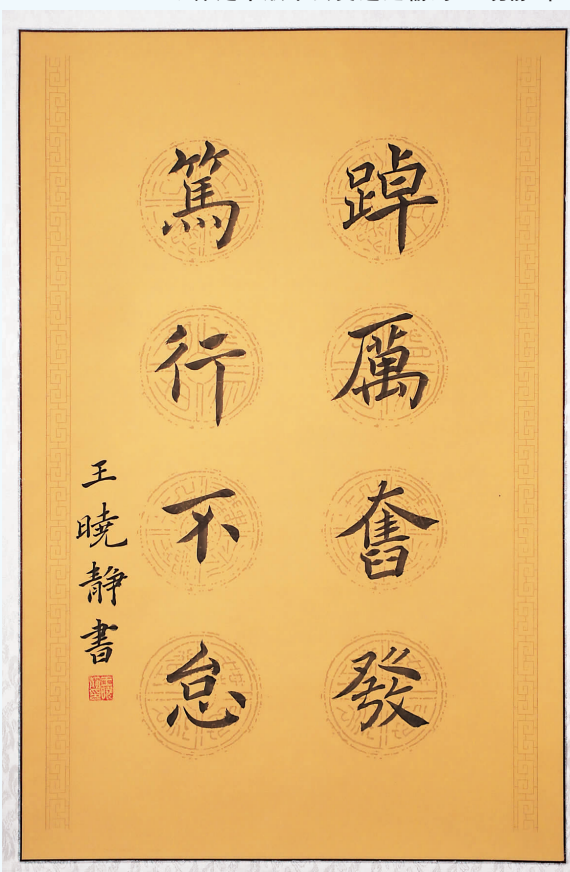 踔厲奮發
篤行不怠
王曉靜書